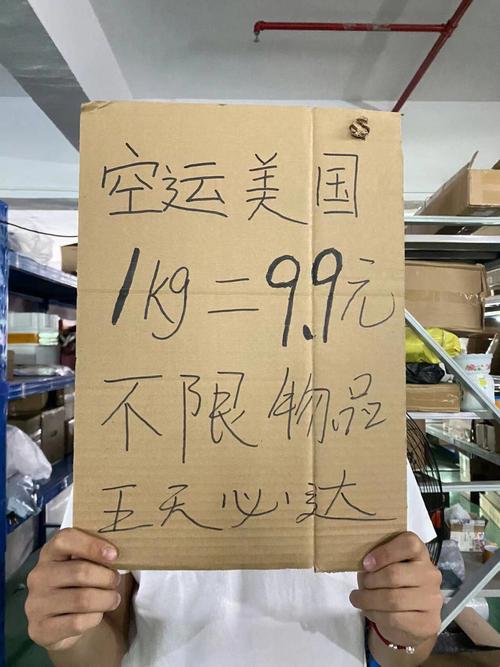 空运美国
1kg=9.9元
不限物品
王天必达